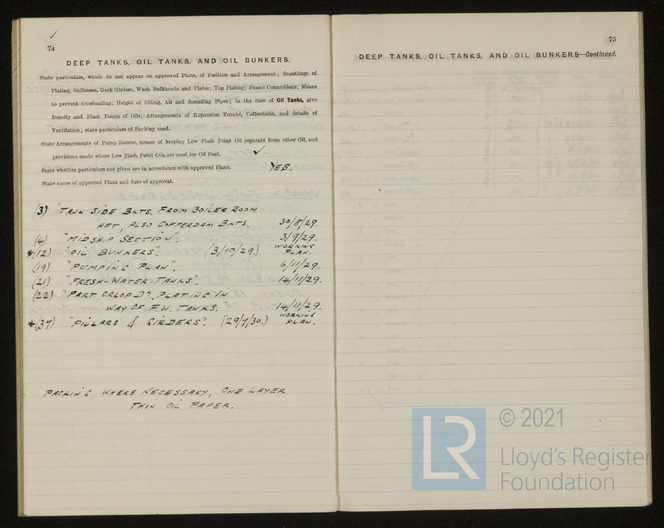 74
DEEP TANKS, OIL TANKS, AND OIL BUNKERS.
State particulars, which do not appear on approval Plans, of Position and Arrangement; Scantlings of
Plating, Stiffeners, Deck Girders, Wash Bulkheads and Plates; Top Plating; Frame Connections; Means
to prevent Overloading; Height of Filling, Air and Sounding Pipes; in the case of Oil Tanks, give
Density and Flash Points of Oils; Arrangements of Expansion Trunks, Cofferdams, and details of
Ventilation; state particulars of Packing used.
State Arrangements of Pump Rooms, means of keeping Low Flash Point Oil separate from other Oil, and
provisions made where Low Flash Point Oils are used for Oil Fuel. ✓
State whether particulars not given are in accordance with approved Plans. YES.
State name of approved Plans and date of approval.
(3) "TANK SIDE BKTS. FROM BOILER ROOM
AFT, ALSO COFFERDAM BKTS. 30/8/29.
(4) "MIDSHIP SECTION". 3/9/29.
*(12) "OIL BUNKERS". (3/10/29) WORKING PLAN.
(19) "PUMPING PLAN". 6/11/29.
(21) "FRESH-WATER TANKS". 14/11/29.
(22) "PART ORLOP DK. PLATING IN
WAY OF F.W. TANKS. 14/11/29.
*(37) "PILLARS & GIRDERS". (29/7/30.) WORKING PLAN.
PACKING, WHERE NECESSARY, ONE LAYER
THIN OIL PAPER.
75
DEEP TANKS, OIL TANKS, AND OIL BUNKERS—Continued.
LR
© 2021
Lloyd's Register
Foundation